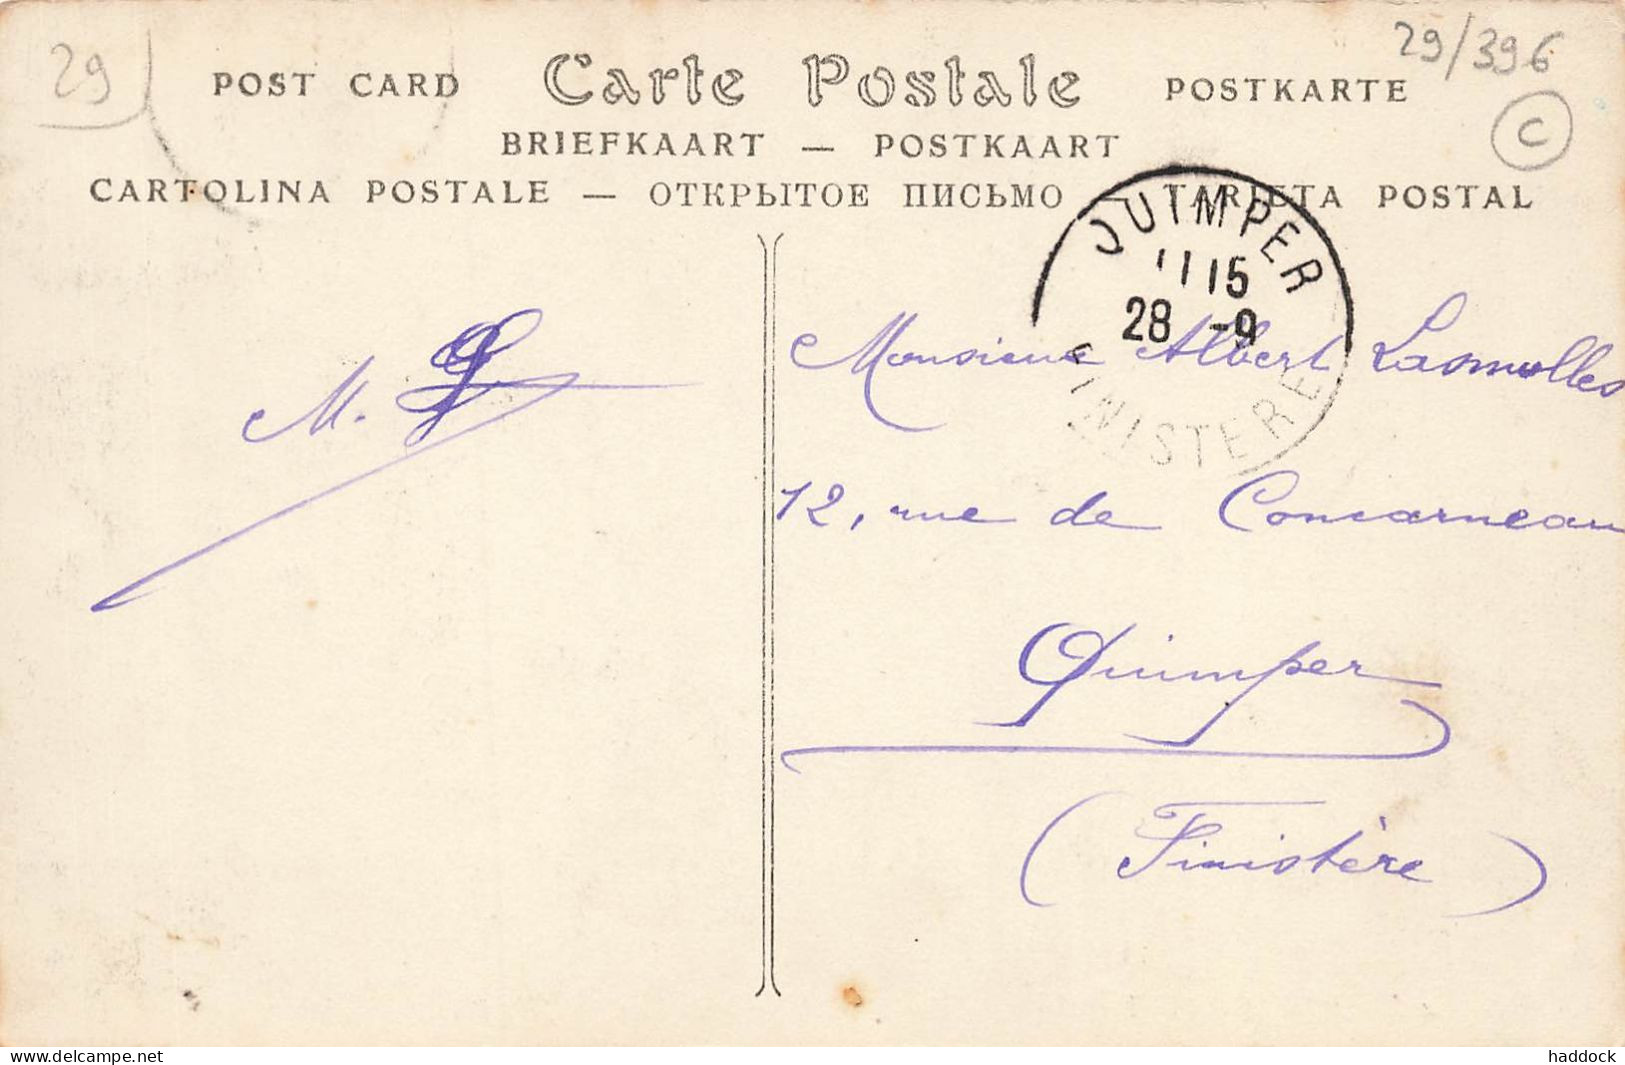 29
29/396
C
POST CARD Carte Postale POSTKARTE
BRIEFKAART — POSTKAART
CARTOLINA POSTALE — ОТКРЫТОЕ ПИСЬМО — TARJETA POSTAL
QUIMPER
11 15
28 -9
FINISTERE
M.
Monsieur Albert Lasmolles
12, rue de Concarneau
Quimper
(Finistère)
www.delcampe.net
haddock